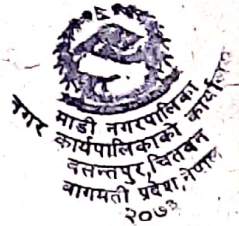 माडी नगरपालिका
नगर कार्यपालिकाको कार्यालय
दसन्तपुर, चितवन
बागमती प्रदेश, नेपाल
२०७३